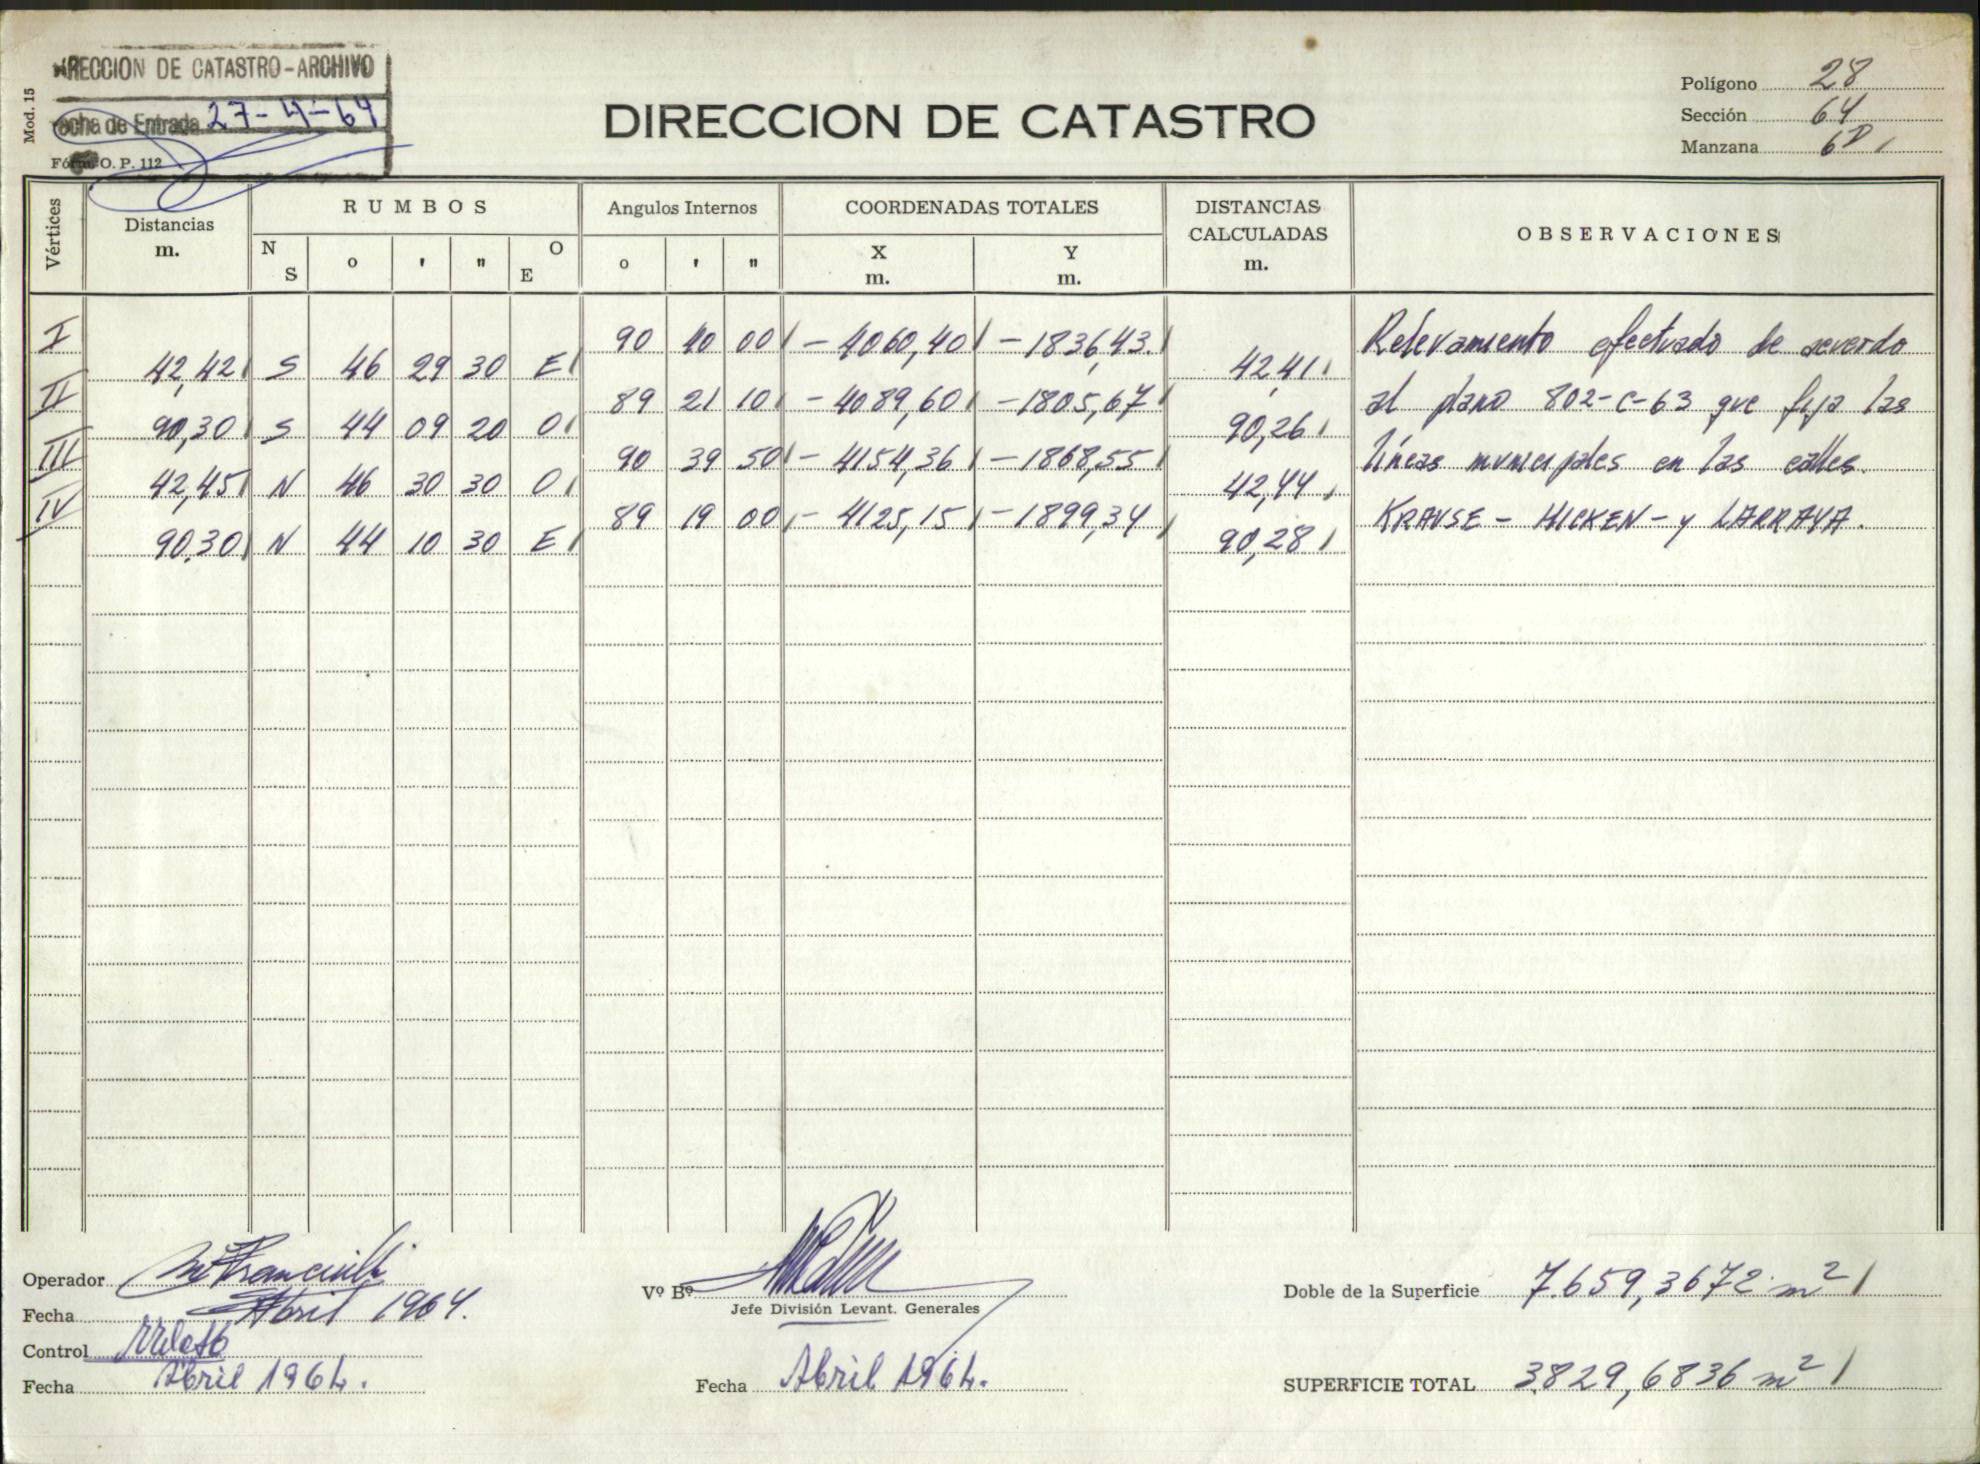 DIRECCION DE CATASTRO-ARCHIVO
Fecha de Entrada 27-4-64
Mod. 15
Fórm. O. P. 112
DIRECCION DE CATASTRO
Polígono 28
Sección 64
Manzana 6D
Vértices
Distancias
m.
RUMBOS
N
S
o ' "
O
E
Angulos Internos
o ' "
COORDENADAS TOTALES
X
m.
Y
m.
DISTANCIAS
CALCULADAS
m.
OBSERVACIONES
I 90 40 00 -4060,40 -1836,43 Relevamiento efectuado de acuerdo
42,42 S 46 29 30 E 42,41
II 89 21 10 -4089,60 -1805,67 al plano 802-C-63 que fija las
90,30 S 44 09 20 O 90,26
III 90 39 50 -4154,36 -1868,55 líneas municipales en las calles
42,45 N 46 30 30 O 42,44
IV 89 19 00 -4125,15 -1899,34 KRAUSE - HICKEN - y LARRAYA.
90,30 N 44 10 30 E 90,28
Operador
Fecha Abril 1964.
Control
Fecha Abril 1964.
Vº Bº
Jefe División Levant. Generales
Fecha Abril 1964.
Doble de la Superficie 7.659,3672 m²
SUPERFICIE TOTAL 3829,6836 m²